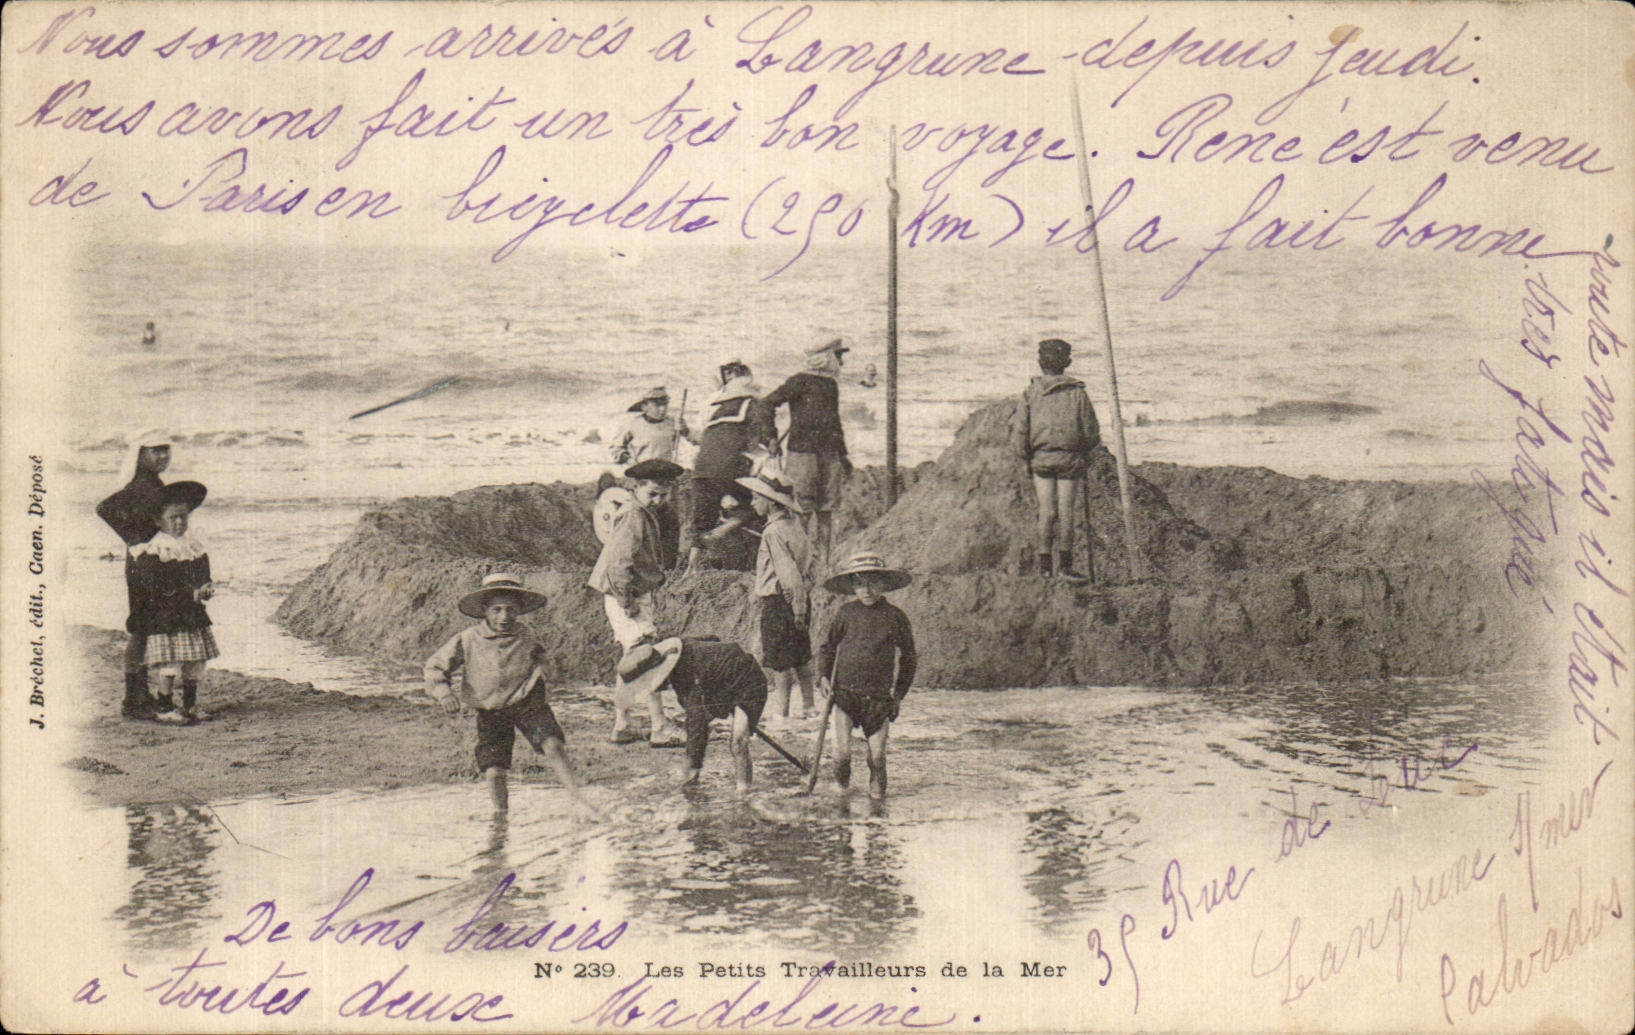 Nous sommes arrivés à Langrune depuis jeudi.
Nous avons fait un très bon voyage. René est venu
de Paris en bicyclette (250 Km) il a fait bonne
route mais il était
très fatigué.
J. Bréchet, édit., Caen. Déposé
35 Rue de Luc
Langrune s/mer
Calvados
De bons baisers
à toutes deux Madeleine.
Nº 239. Les Petits Travailleurs de la Mer